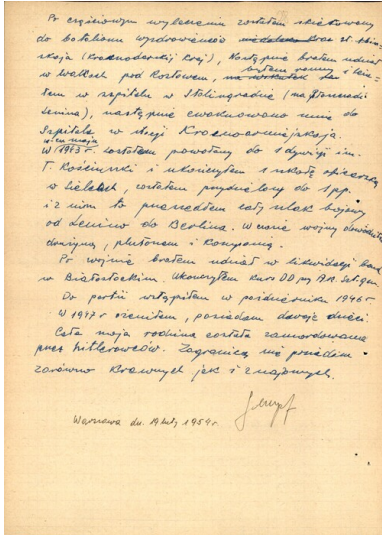 Po częściowym wyleczeniu zostałem skierowany
do batalionu wyzdrowieńców st.
(Krasnodarski Kraj), Następnie brałem udział
w walkach pod Rostowem, byłem ranny i
w szpitalu w Stalingradzie (na
Lenina), następnie ewakuowano mnie do
Szpitala w stacji Krasnoarmiejskaja.
W maju 1943 r. zostałem powołany do 1 dywizji im.
T. Kościuszki i ukończyłem szkołę oficerską
w Sielcach, zostałem przydzielony do 1 pp.
i z nim to przeszedłem cały szlak bojowy
od Lenino do Berlina. W czasie wojny dowodziłem
drużyną, plutonem i kompanią.
Po wojnie brałem udział w likwidacji band
w Białostockim. Ukończyłem kurs
Do partii wstąpiłem w październiku 1946 r.
W 1947 r ożeniłem, posiadam dwoje dzieci.
Cała moja rodzina została zamordowana
przez hitlerowców. Zagranicą nie posiadam
zarówno krewnych jak i znajomych.
Warszawa dn. 19 luty 1959 r.